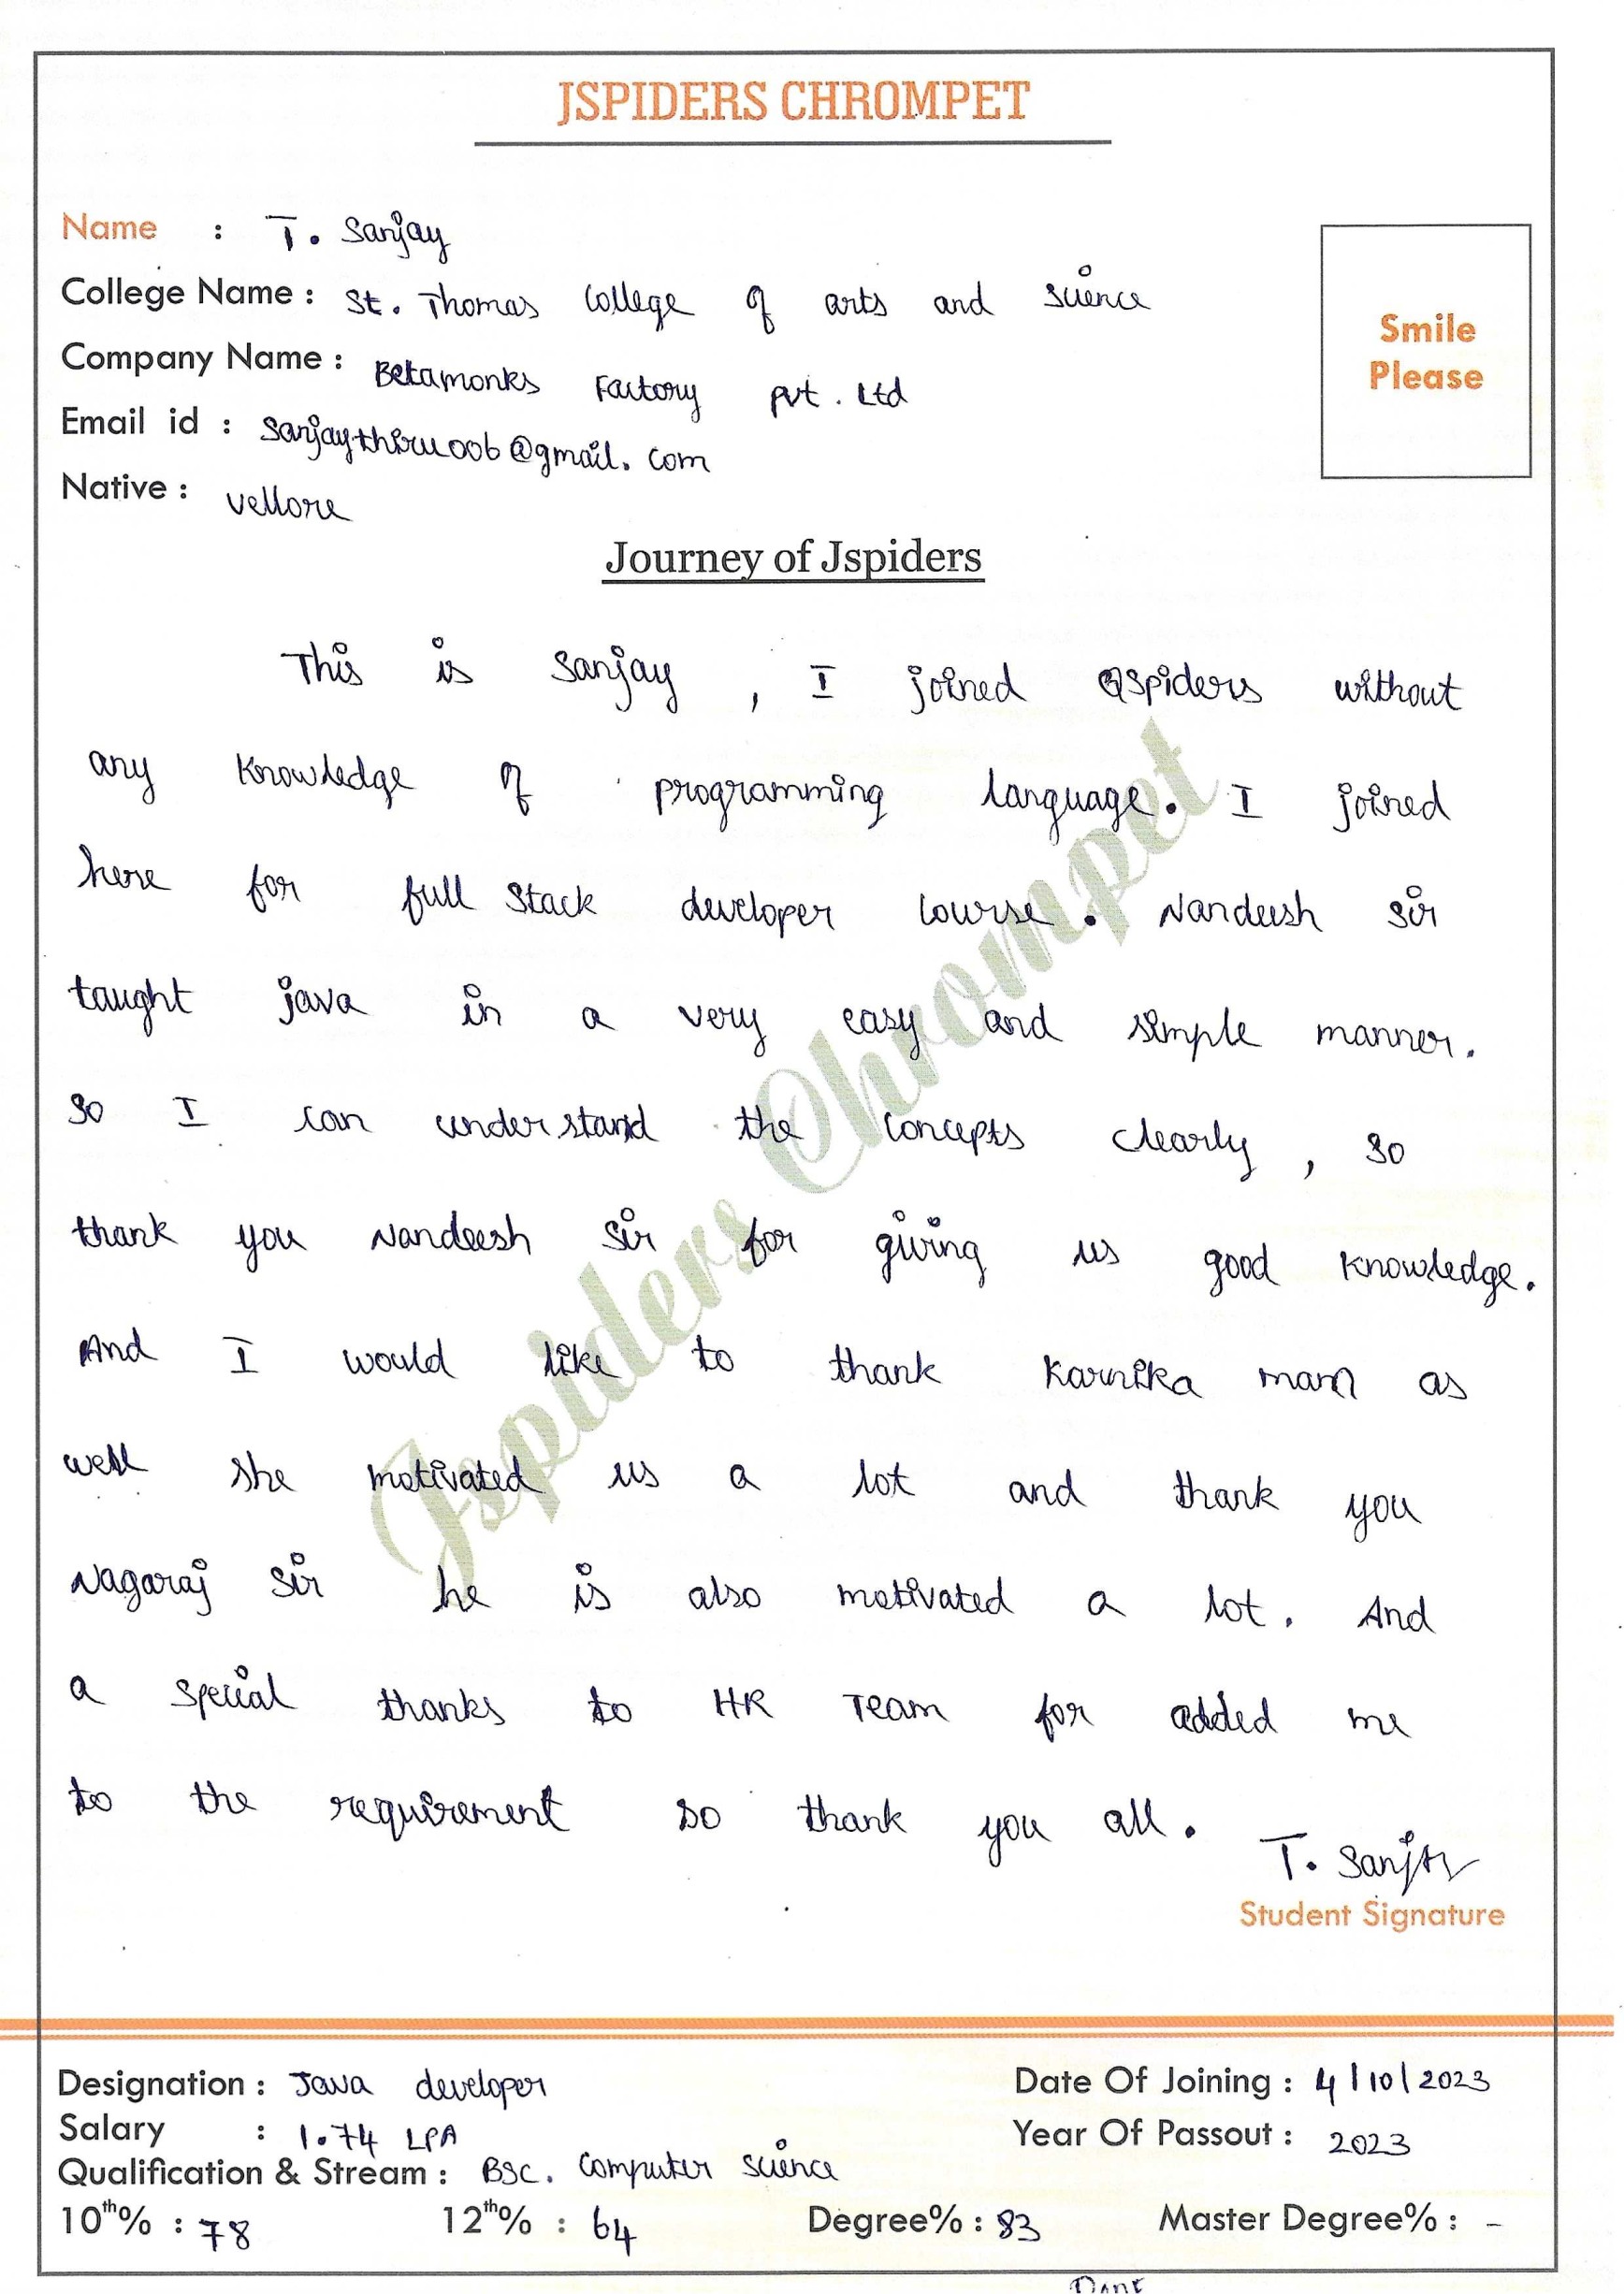 JSPIDERS CHROMPET
Name : T. Sanjay
College Name : St. Thomas College of arts and science
Company Name : Betamonks Factory pvt. Ltd
Email id : sanjaythiru006@gmail.com
Native : vellore
Smile
Please
Journey of Jspiders
This is Sanjay, I joined QSpiders without
any knowledge of programming language. I joined
here for full stack developer course. Nandeesh sir
taught java in a very easy and simple manner.
so I can understand the concepts clearly, so
thank you Nandeesh sir for giving us good knowledge.
And I would like to thank Karnika mam as
well she motivated us a lot and thank you
Nagaraj sir he is also motivated a lot. And
a special thanks to HR Team for added me
to the requirement so thank you all.
T. Sanjay
Student Signature
Jspiders Chrompet
Designation : Java developer
Date Of Joining : 4/10/2023
Salary : 1.74 LPA
Year Of Passout : 2023
Qualification & Stream : BSC. Computer science
10th% : 78 12th% : 64 Degree% : 83 Master Degree% : -